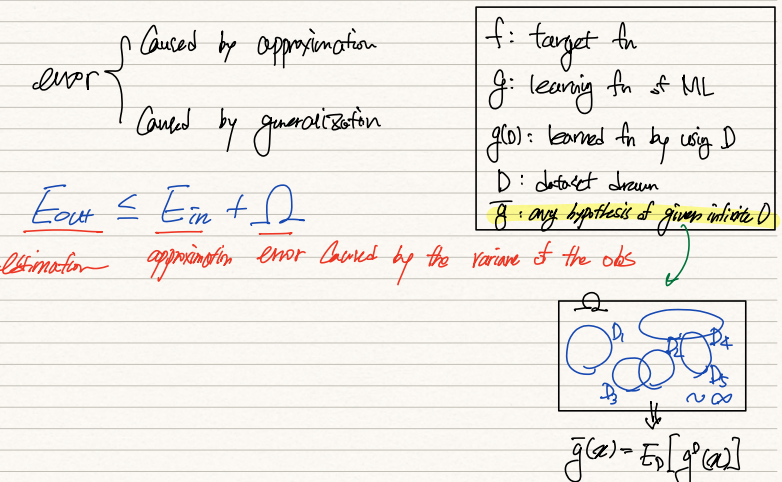 error
Caused by approximation
Caused by generalization
f: target fn
g: learning fn of ML
g(D): learned fn by using D
D: dataset drawn
g̅: avg hypothesis of given infinite D
Eout ≤ Ein + Ω
estimation approximation error caused by the variance of the obs
Ω
D1 D2 D4
D3 D5
~ ∞
g̅(x) = E_D[g^D(x)]